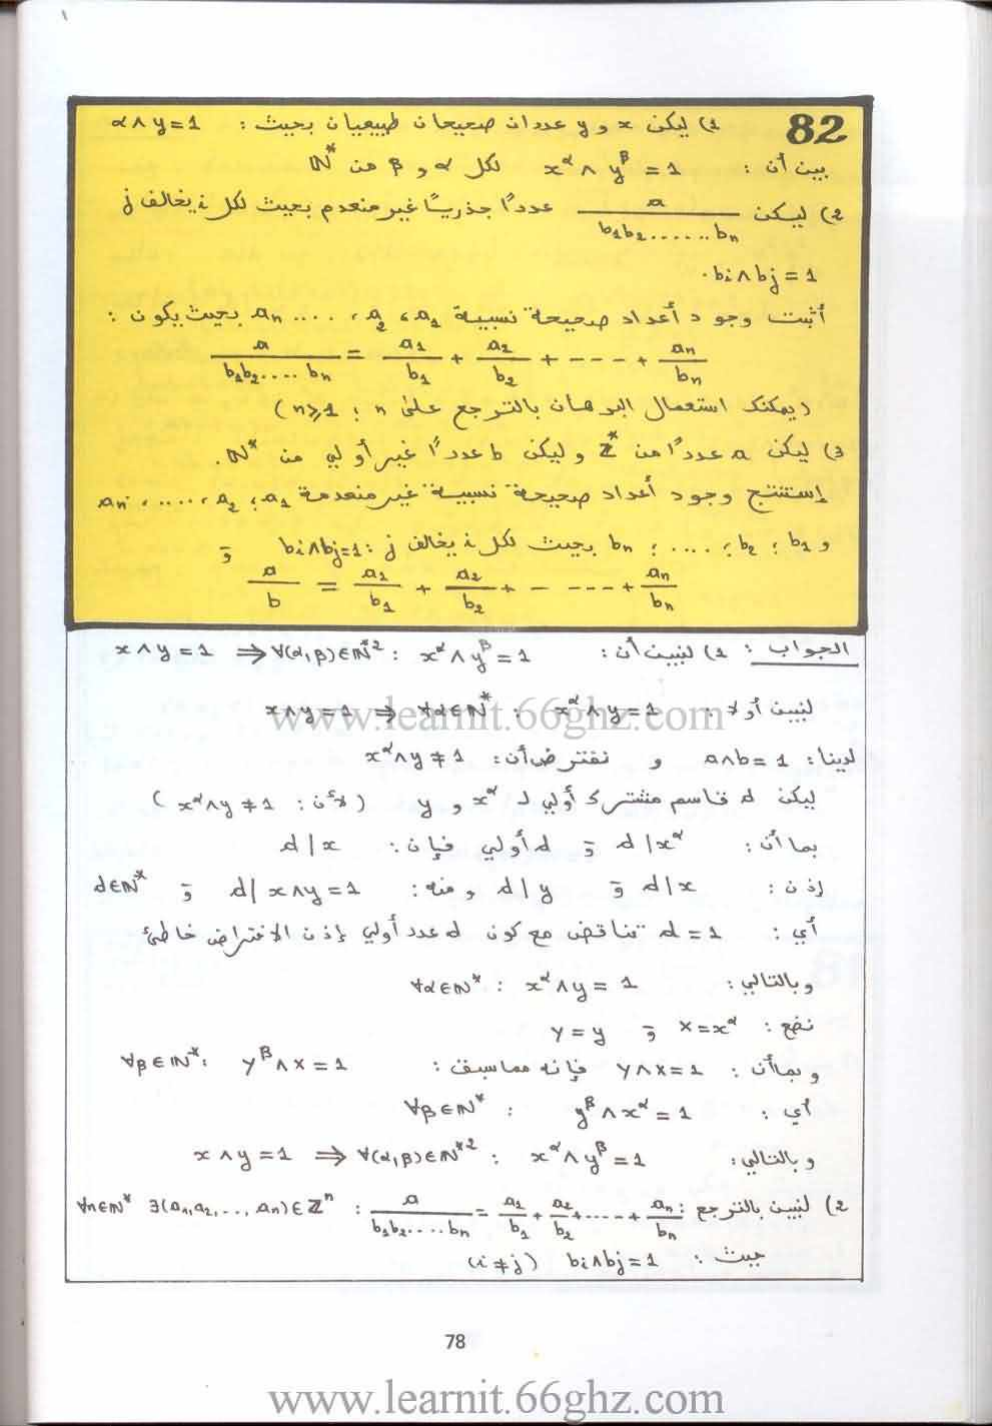 82 1) ليكن x و y عددان صحيحان طبيعيان بحيث : x∧y=1
بين أن : x^α ∧ y^β = 1 لكل α و β من ℕ*
2) ليكن a/(b₁b₂......bₙ) عددًا جذريًا غير منعدم بحيث لكل i يخالف j
bᵢ∧bⱼ=1.
أثبت وجود أعداد صحيحة نسبية a₁ ، a₂ ، .... aₙ بحيث يكون :
a/(b₁b₂....bₙ) = a₁/b₁ + a₂/b₂ + ---- + aₙ/bₙ
(يمكنك استعمال البرهان بالترجع على n ؛ n⩾1)
3) ليكن a عددًا من ℤ* و ليكن b عددًا غير أولي من ℕ*.
إستنتج وجود أعداد صحيحة نسبية غير منعدمة a₁ ؛ a₂ ، ..... ، aₙ
و b₁ ؛ b₂ ؛ .... ؛ bₙ بحيث لكل i يخالف j : bᵢ∧bⱼ=1 وَ
a/b = a₁/b₁ + a₂/b₂ + - --- + aₙ/bₙ
الجواب : 1) لنبين أن : x∧y=1 ⟹ ∀(α,β)∈ℕ*² : x^α ∧ y^β = 1
لنبين أولا : x∧y=1 ⟹ ∀α∈ℕ* : x^α∧y=1
www.learnit.66ghz.com
لدينا : a∧b=1 و نفترض أن : x^α∧y≠1
ليكن d قاسم مشترك أولي لـ x^α و y (لأن : x^α∧y≠1)
بما أن : d|x^α وَ d أولي فإن : d|x
إذن : d|x وَ d|y ومنه : d|x∧y=1 وَ d∈ℕ*
أي : d=1 تناقض مع كون d عدد أولي إذن الافتراض خاطئ
وبالتالي : ∀α∈ℕ* : x^α∧y=1
نضع : X=x^α وَ Y=y
وبماأن : Y∧X=1 فإنه مما سبق : ∀β∈ℕ* : Y^β∧X=1
أي : ∀β∈ℕ* : y^β∧x^α=1
وبالتالي : x∧y=1 ⟹ ∀(α,β)∈ℕ*² : x^α∧y^β=1
2) لنبين بالترجع : ∀n∈ℕ* ∃(a₁,a₂,..,aₙ)∈ℤⁿ : a/(b₁b₂....bₙ) = a₁/b₁ + a₂/b₂ +....+ aₙ/bₙ
حيث : bᵢ∧bⱼ=1 (i≠j)
78
www.learnit.66ghz.com